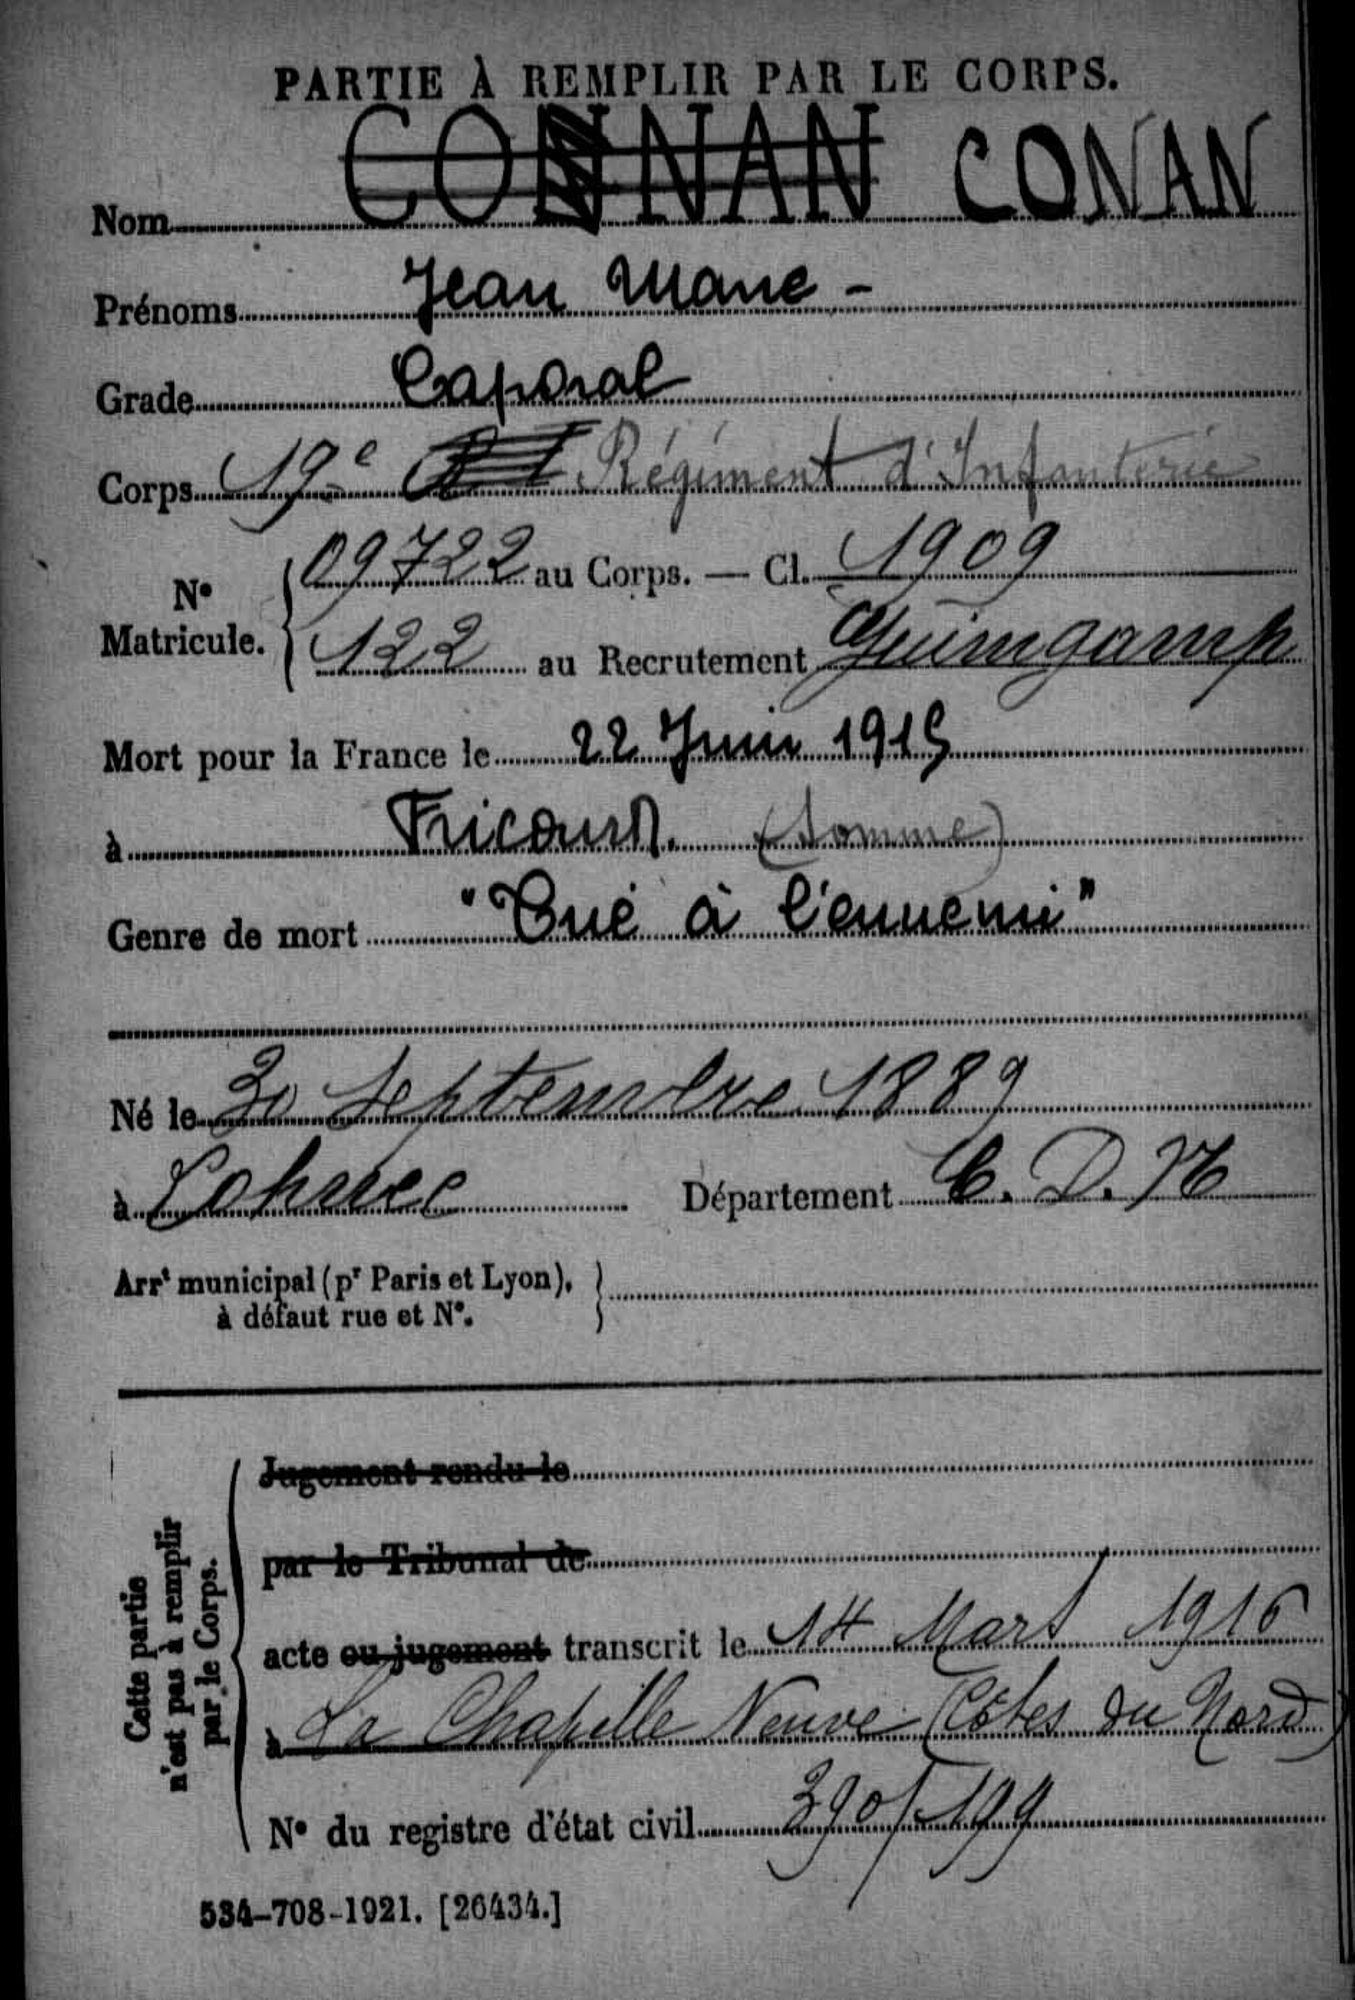 PARTIE À REMPLIR PAR LE CORPS.
Nom CONNAN CONAN
Prénoms Jean Marie -
Grade Caporal
Corps 19e RI Régiment d'Infanterie
No Matricule. 09722 au Corps. — Cl. 1909
122 au Recrutement Guimgamp
Mort pour la France le 22 Juin 1915
à Fricourt. (Somme)
Genre de mort "Tué à l'ennemi"
Né le 30 Septembre 1889
à Lohuec Département C. D. N
Arrt municipal (pr Paris et Lyon),
à défaut rue et No.
Cette partie
n'est pas à remplir
par le Corps.
Jugement rendu le
par le Tribunal de
acte ou jugement transcrit le 14 Mars 1916
à La Chapelle Neuve (Côtes du Nord)
No du registre d'état civil 390/199
534-708-1921. [26434.]